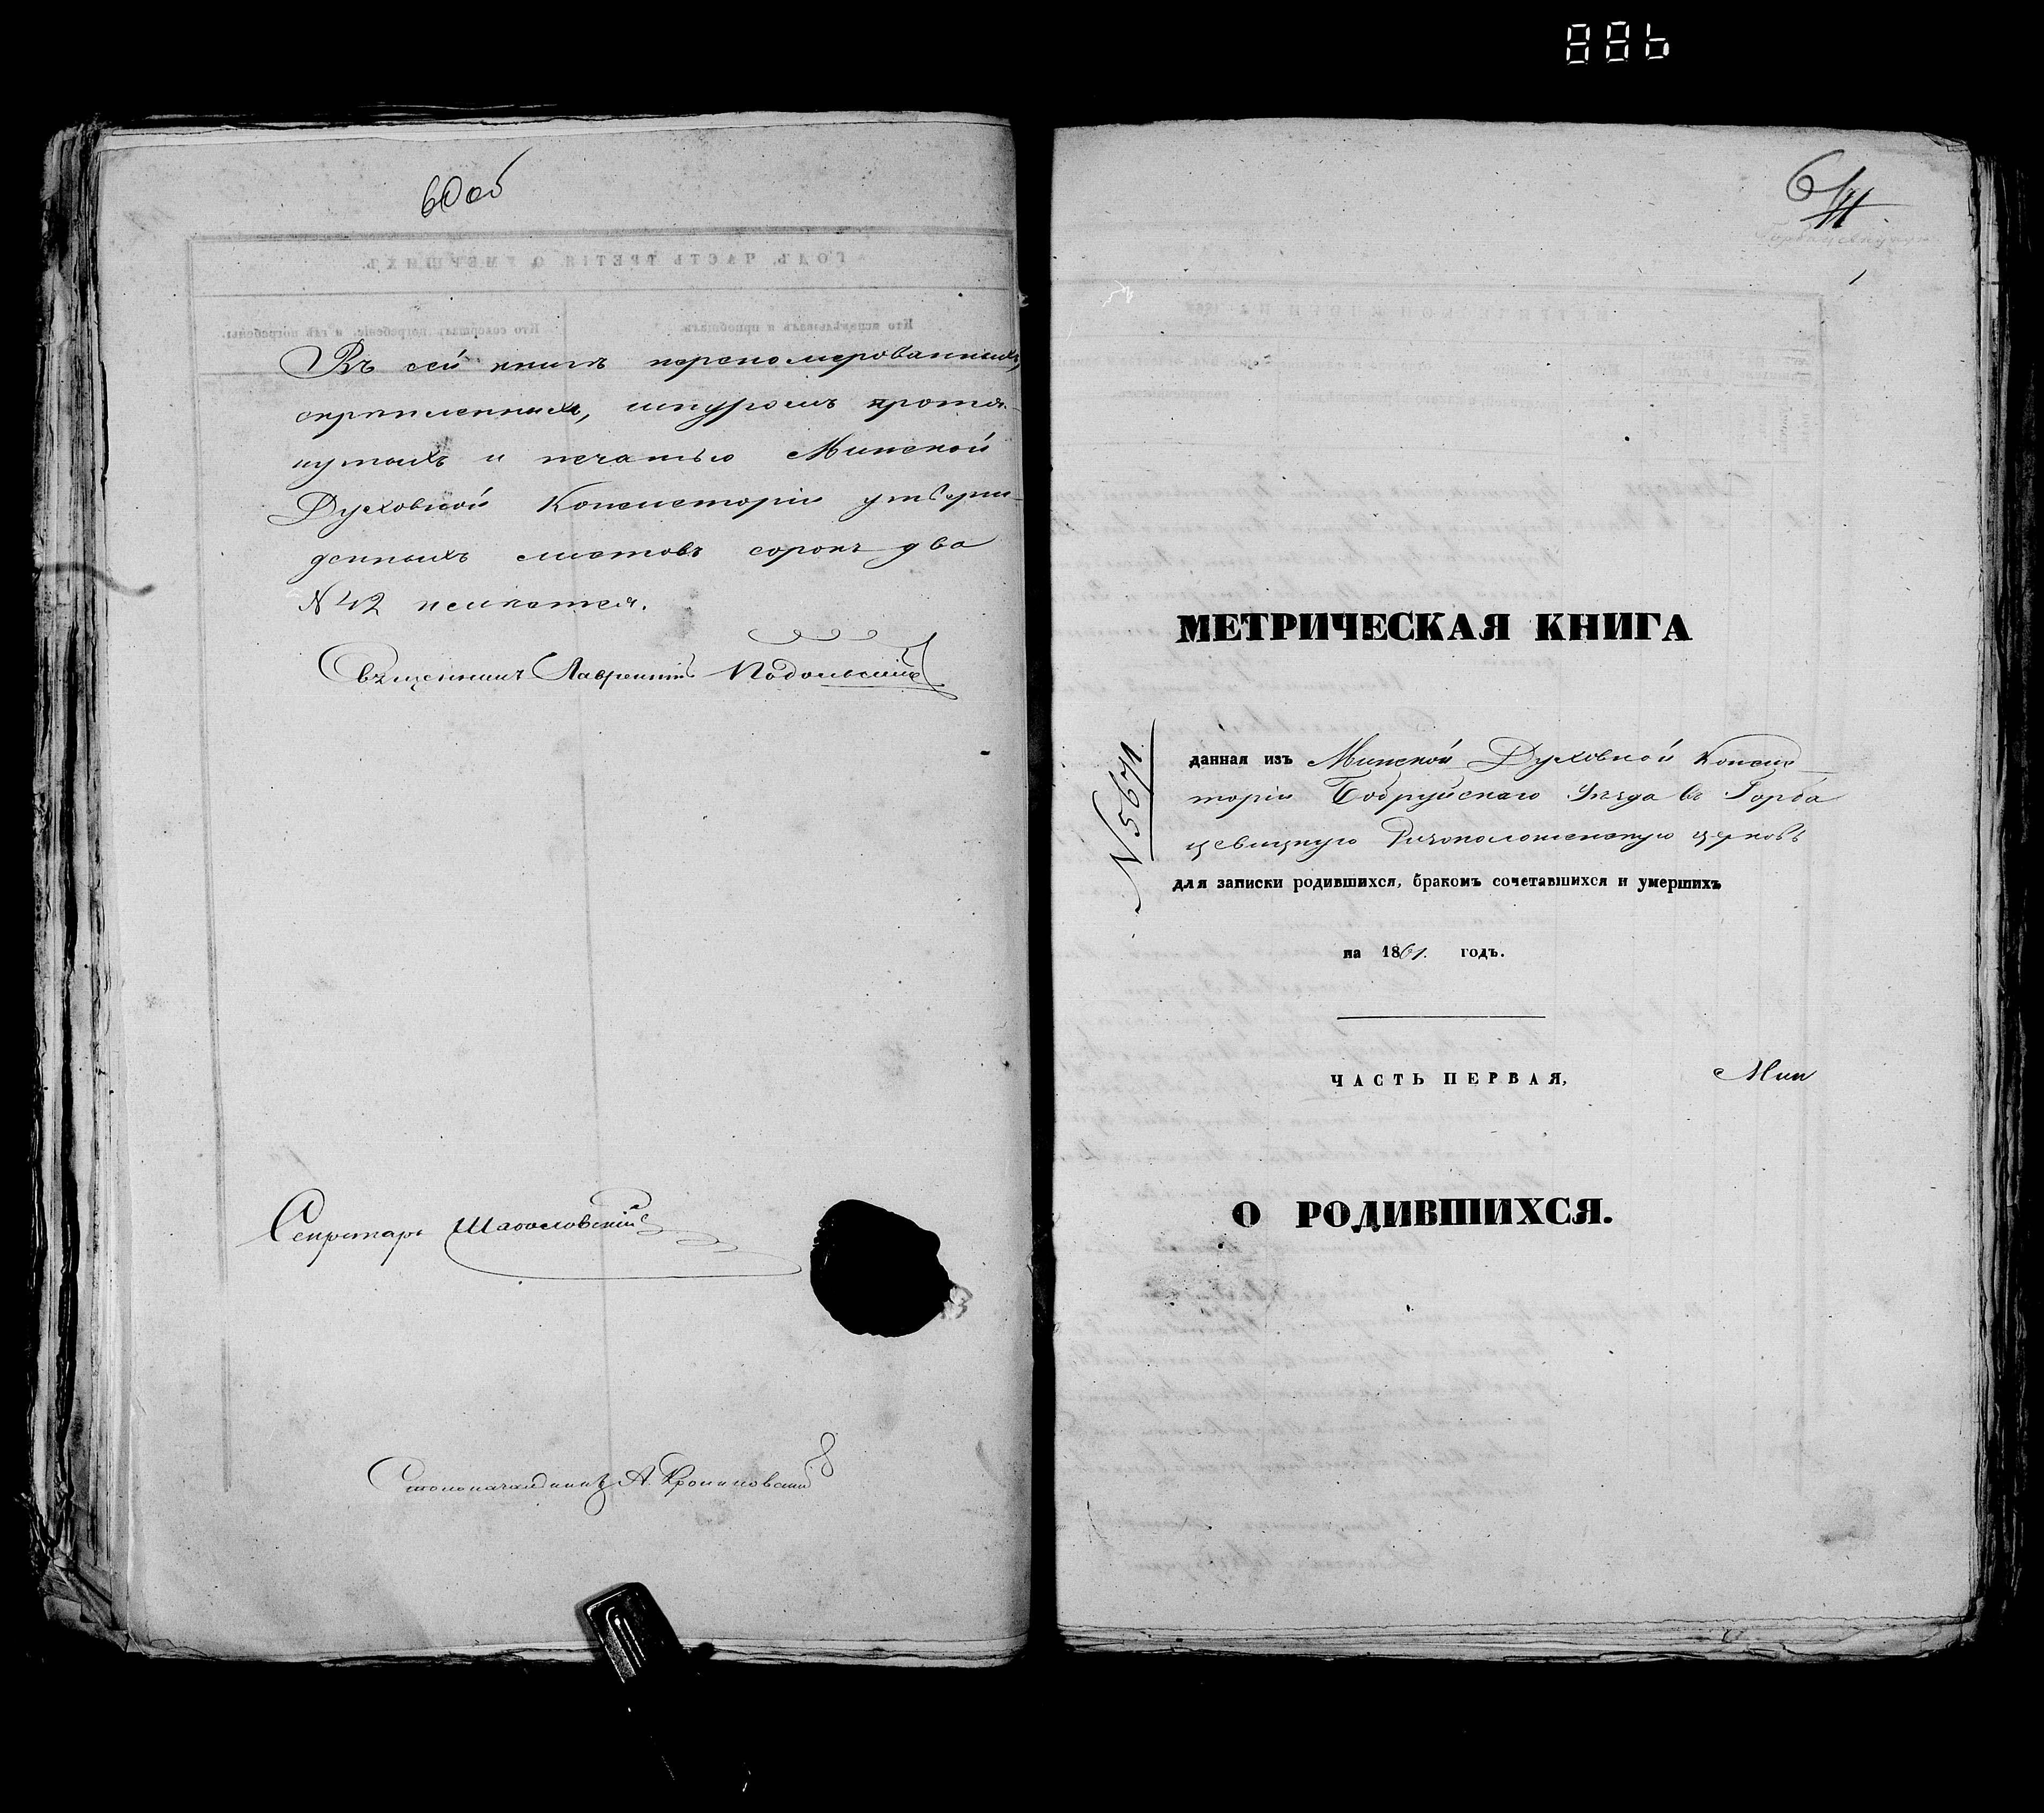 60 об
Въ сей книгѣ перепомерованныхъ,
скрѣпленныхъ, шнуромъ протя-
нутыхъ и печатью Минской
Духовной Консисторіи утверж-
денныхъ листовъ сорокъ два
№ 42 исшется.
Священникъ Лаврентій Подольскій
Секретарь
Столоначальникъ А.
61
1
МЕТРИЧЕСКАЯ КНИГА
№ 5671.
данная изъ Минской Духовной Консис-
торіи Бобруйскаго Уѣзда въ Горба
цевицкую Ризоположенскую церковь
для записки родившихся, бракомъ сочетавшихся и умершихъ
на 1861. годъ.
ЧАСТЬ ПЕРВАЯ,
Мин
О РОДИВШИХСЯ.